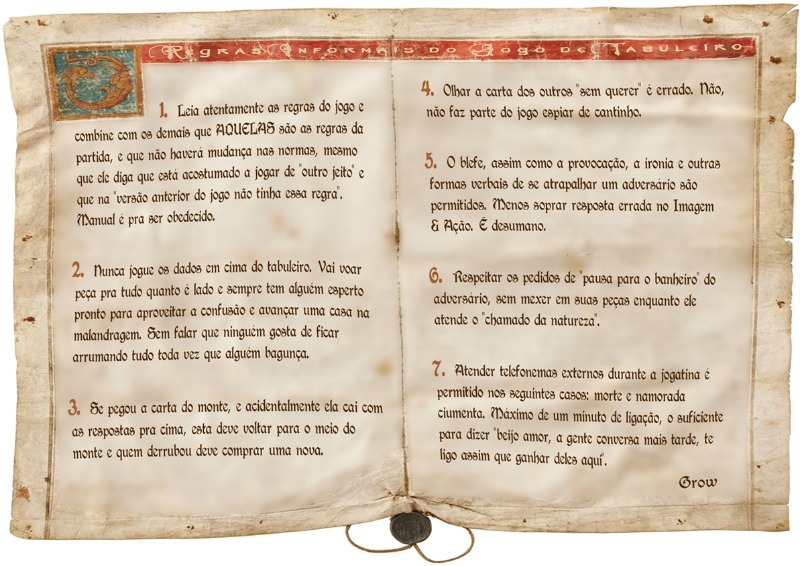 Regras Informais do Jogo de Tabuleiro
1. Leia atentamente as regras do jogo e
combine com os demais que AQUELAS são as regras da
partida, e que não haverá mudança nas normas, mesmo
que ele diga que está acostumado a jogar de "outro jeito" e
que na "versão anterior do jogo não tinha essa regra".
Manual é pra ser obedecido.
2. Nunca jogue os dados em cima do tabuleiro. Vai voar
peça pra tudo quanto é lado e sempre tem alguém esperto
pronto para aproveitar a confusão e avançar uma casa na
malandragem. Sem falar que ninguém gosta de ficar
arrumando tudo toda vez que alguém bagunça.
3. Se pegou a carta do monte, e acidentalmente ela cai com
as respostas pra cima, esta deve voltar para o meio do
monte e quem derrubou deve comprar uma nova.
4. Olhar a carta dos outros "sem querer" é errado. Não,
não faz parte do jogo espiar de cantinho.
5. O blefe, assim como a provocação, a ironia e outras
formas verbais de se atrapalhar um adversário são
permitidos. Menos soprar resposta errada no Imagem
& Ação. É desumano.
6. Respeitar os pedidos de "pausa para o banheiro" do
adversário, sem mexer em suas peças enquanto ele
atende o "chamado da natureza".
7. Atender telefonemas externos durante a jogatina é
permitido nos seguintes casos: morte e namorada
ciumenta. Máximo de um minuto de ligação, o suficiente
para dizer "beijo amor, a gente conversa mais tarde, te
ligo assim que ganhar deles aqui".
Grow